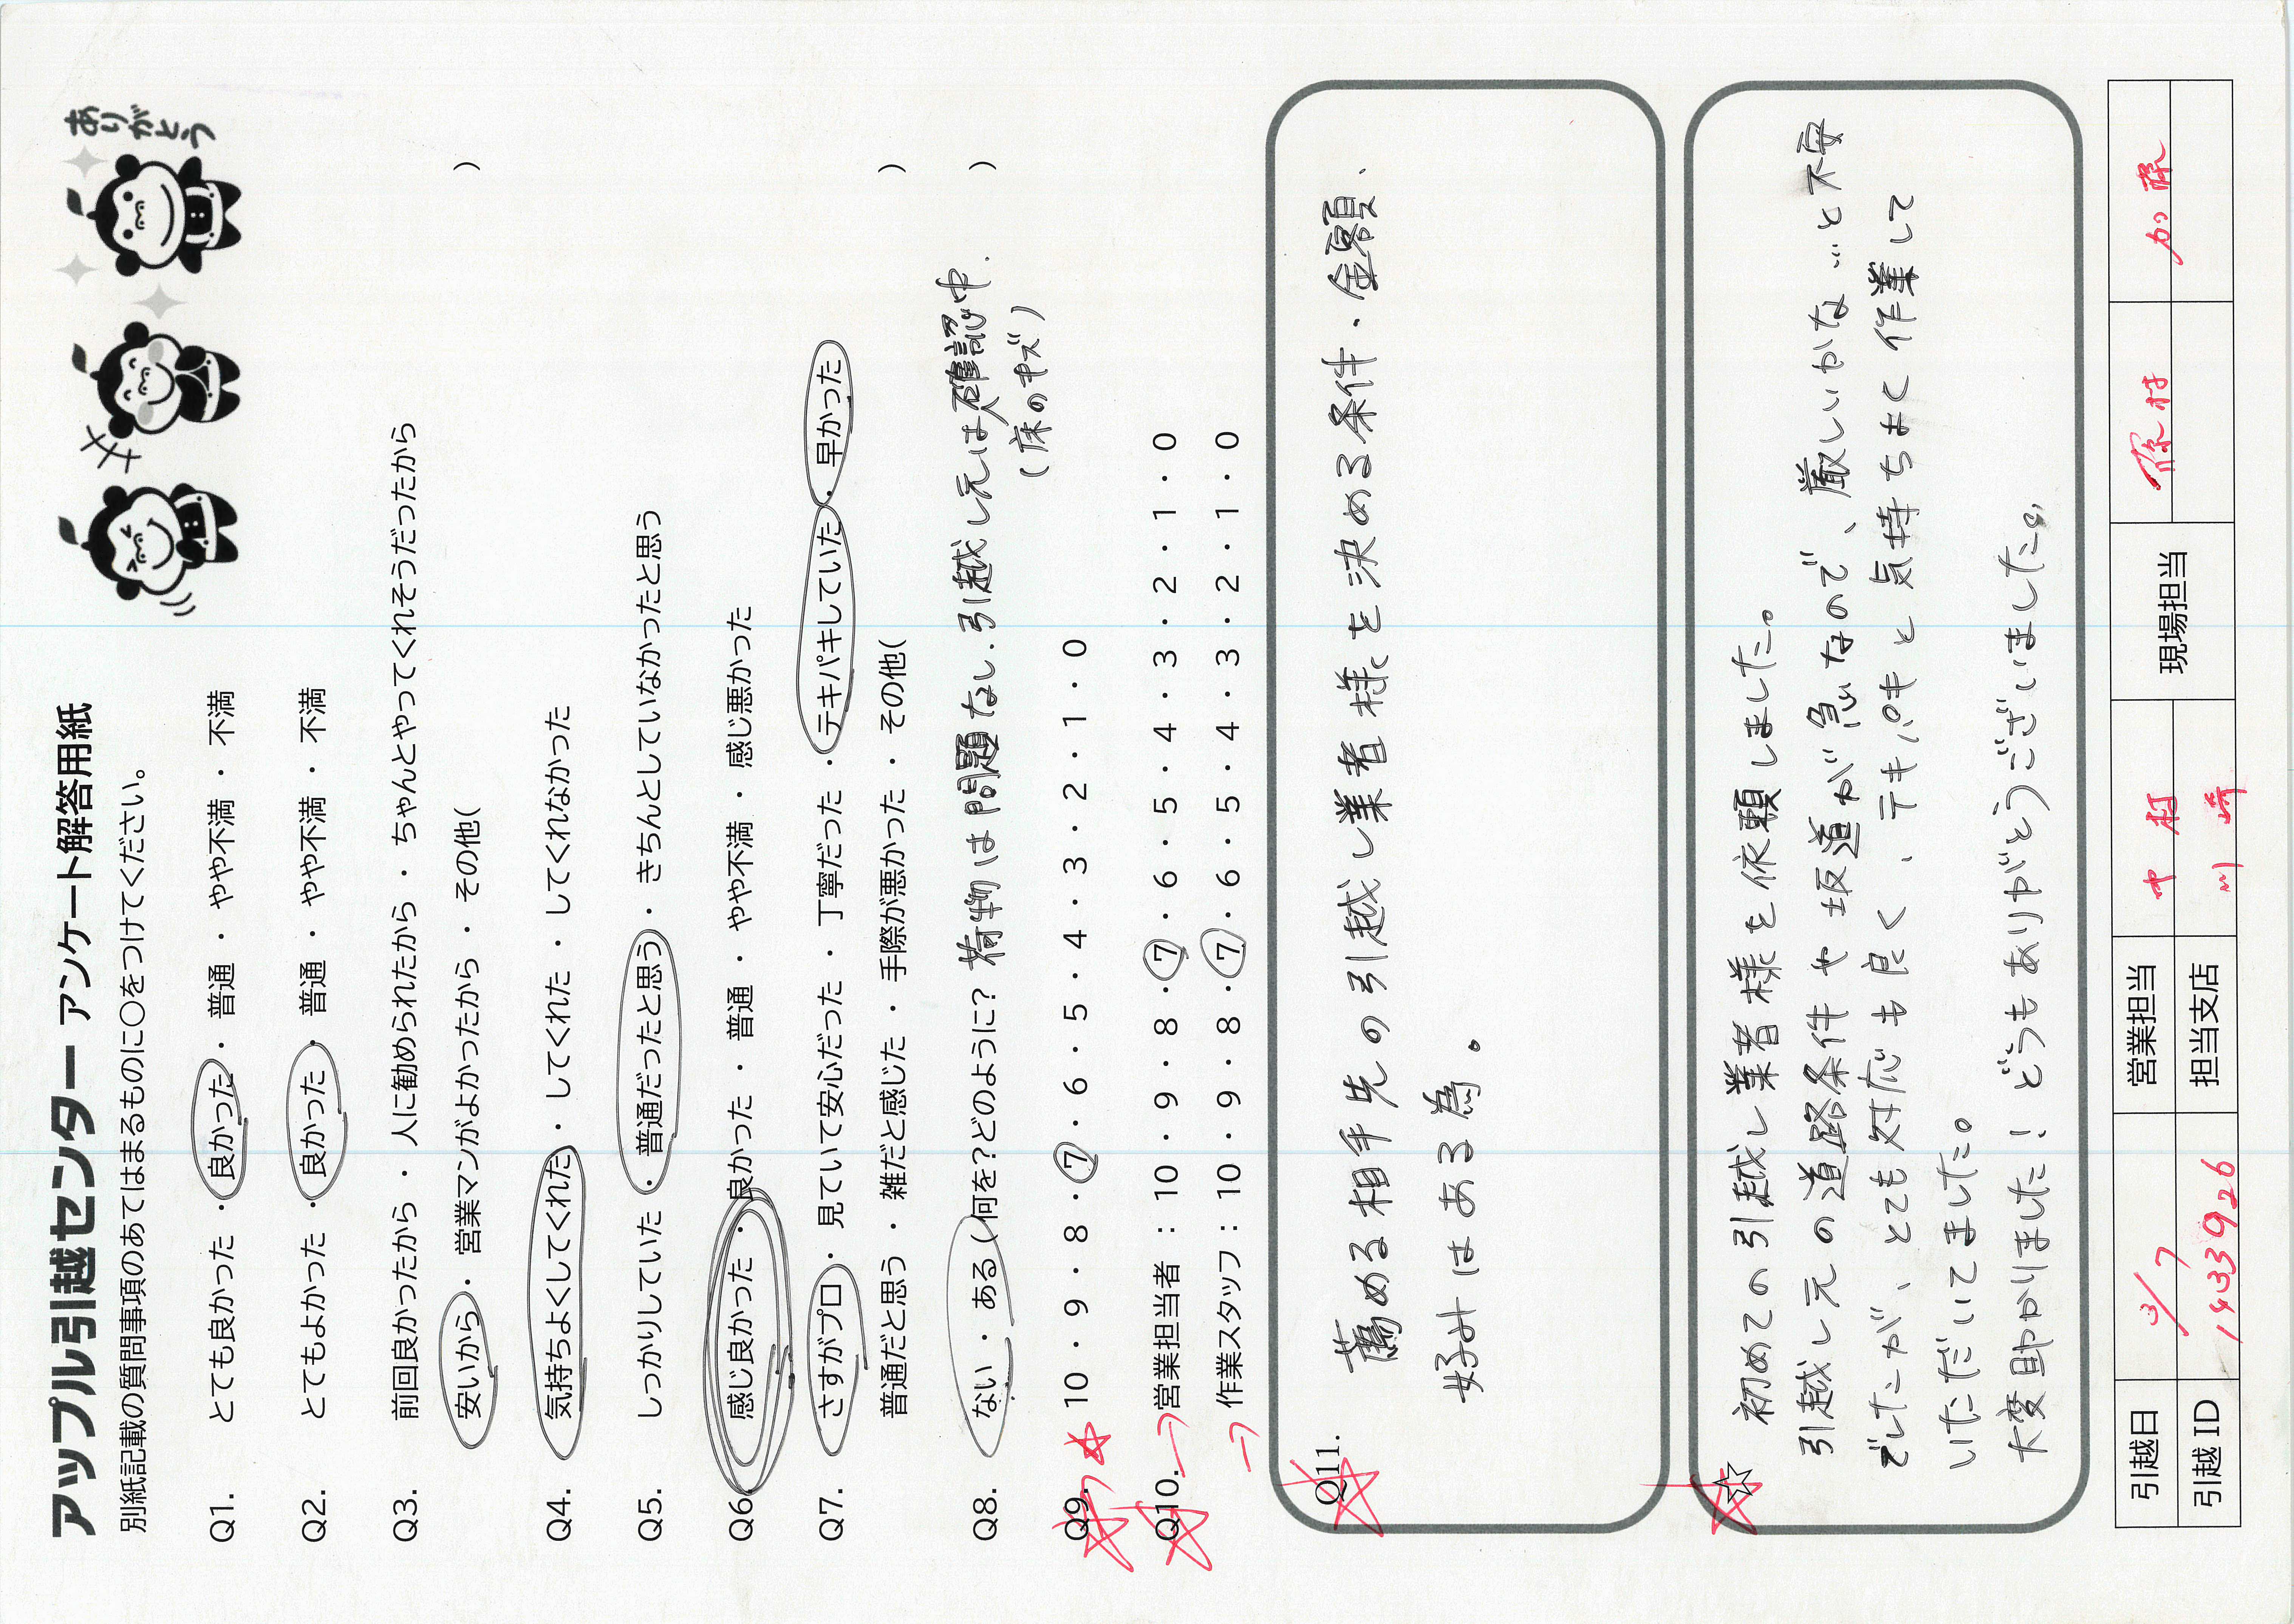 アップル引越センター アンケート解答用紙
ありがとう
別紙記載の質問事項のあてはまるものに〇をつけてください。
Q1. とても良かった ・ 良かった ・ 普通 ・ やや不満 ・ 不満
Q2. とてもよかった ・ 良かった ・ 普通 ・ やや不満 ・ 不満
Q3. 前回良かったから ・ 人に勧められたから ・ ちゃんとやってくれそうだったから
安いから ・ 営業マンがよかったから ・ その他( )
Q4. 気持ちよくしてくれた ・ してくれた ・ してくれなかった
Q5. しっかりしていた ・ 普通だったと思う ・ きちんとしていなかったと思う
Q6. 感じ良かった ・ 良かった ・ 普通 ・ やや不満 ・ 感じ悪かった
Q7. さすがプロ ・ 見ていて安心だった ・ 丁寧だった ・ テキパキしていた ・ 早かった
普通だと思う ・ 雑だと感じた ・ 手際が悪かった ・ その他( )
Q8. ない ・ ある (何を?どのように? 荷物は問題なし. 引越し元は確認中. )
(床のキズ)
Q9. 10 ・ 9 ・ 8 ・ 7 ・ 6 ・ 5 ・ 4 ・ 3 ・ 2 ・ 1 ・ 0
Q10. 営業担当者 : 10 ・ 9 ・ 8 ・ 7 ・ 6 ・ 5 ・ 4 ・ 3 ・ 2 ・ 1 ・ 0
作業スタッフ : 10 ・ 9 ・ 8 ・ 7 ・ 6 ・ 5 ・ 4 ・ 3 ・ 2 ・ 1 ・ 0
Q11.
薦める相手先の引越し業者様を決める条件・金額、
好みはある為。
☆
初めての引越し業者様を依頼しました。
引越し元の道路条件や坂道が急なので、厳しいかな…と不安
でしたが、とても対応も良く、テキパキと気持ちまく作業して
いただいてました。
大変助かりました! どうもありがとうございました。
引越日 3/7 営業担当 中村 現場担当 加藤
引越ID 1433926 担当支店 川崎